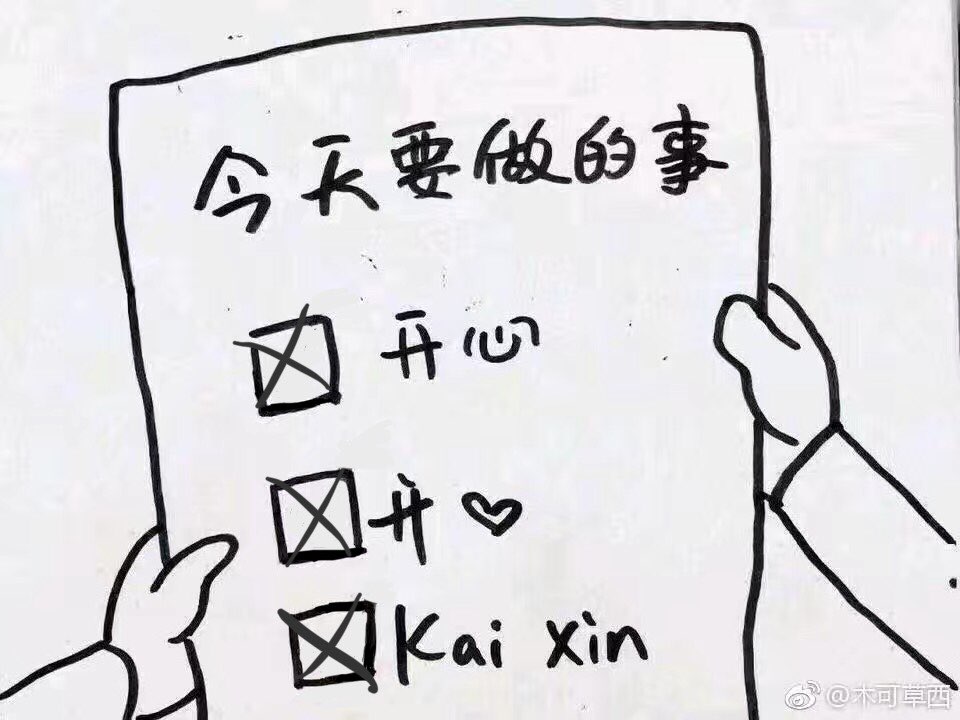 今天要做的事
开心
开♡
Kai xin
@木可草西